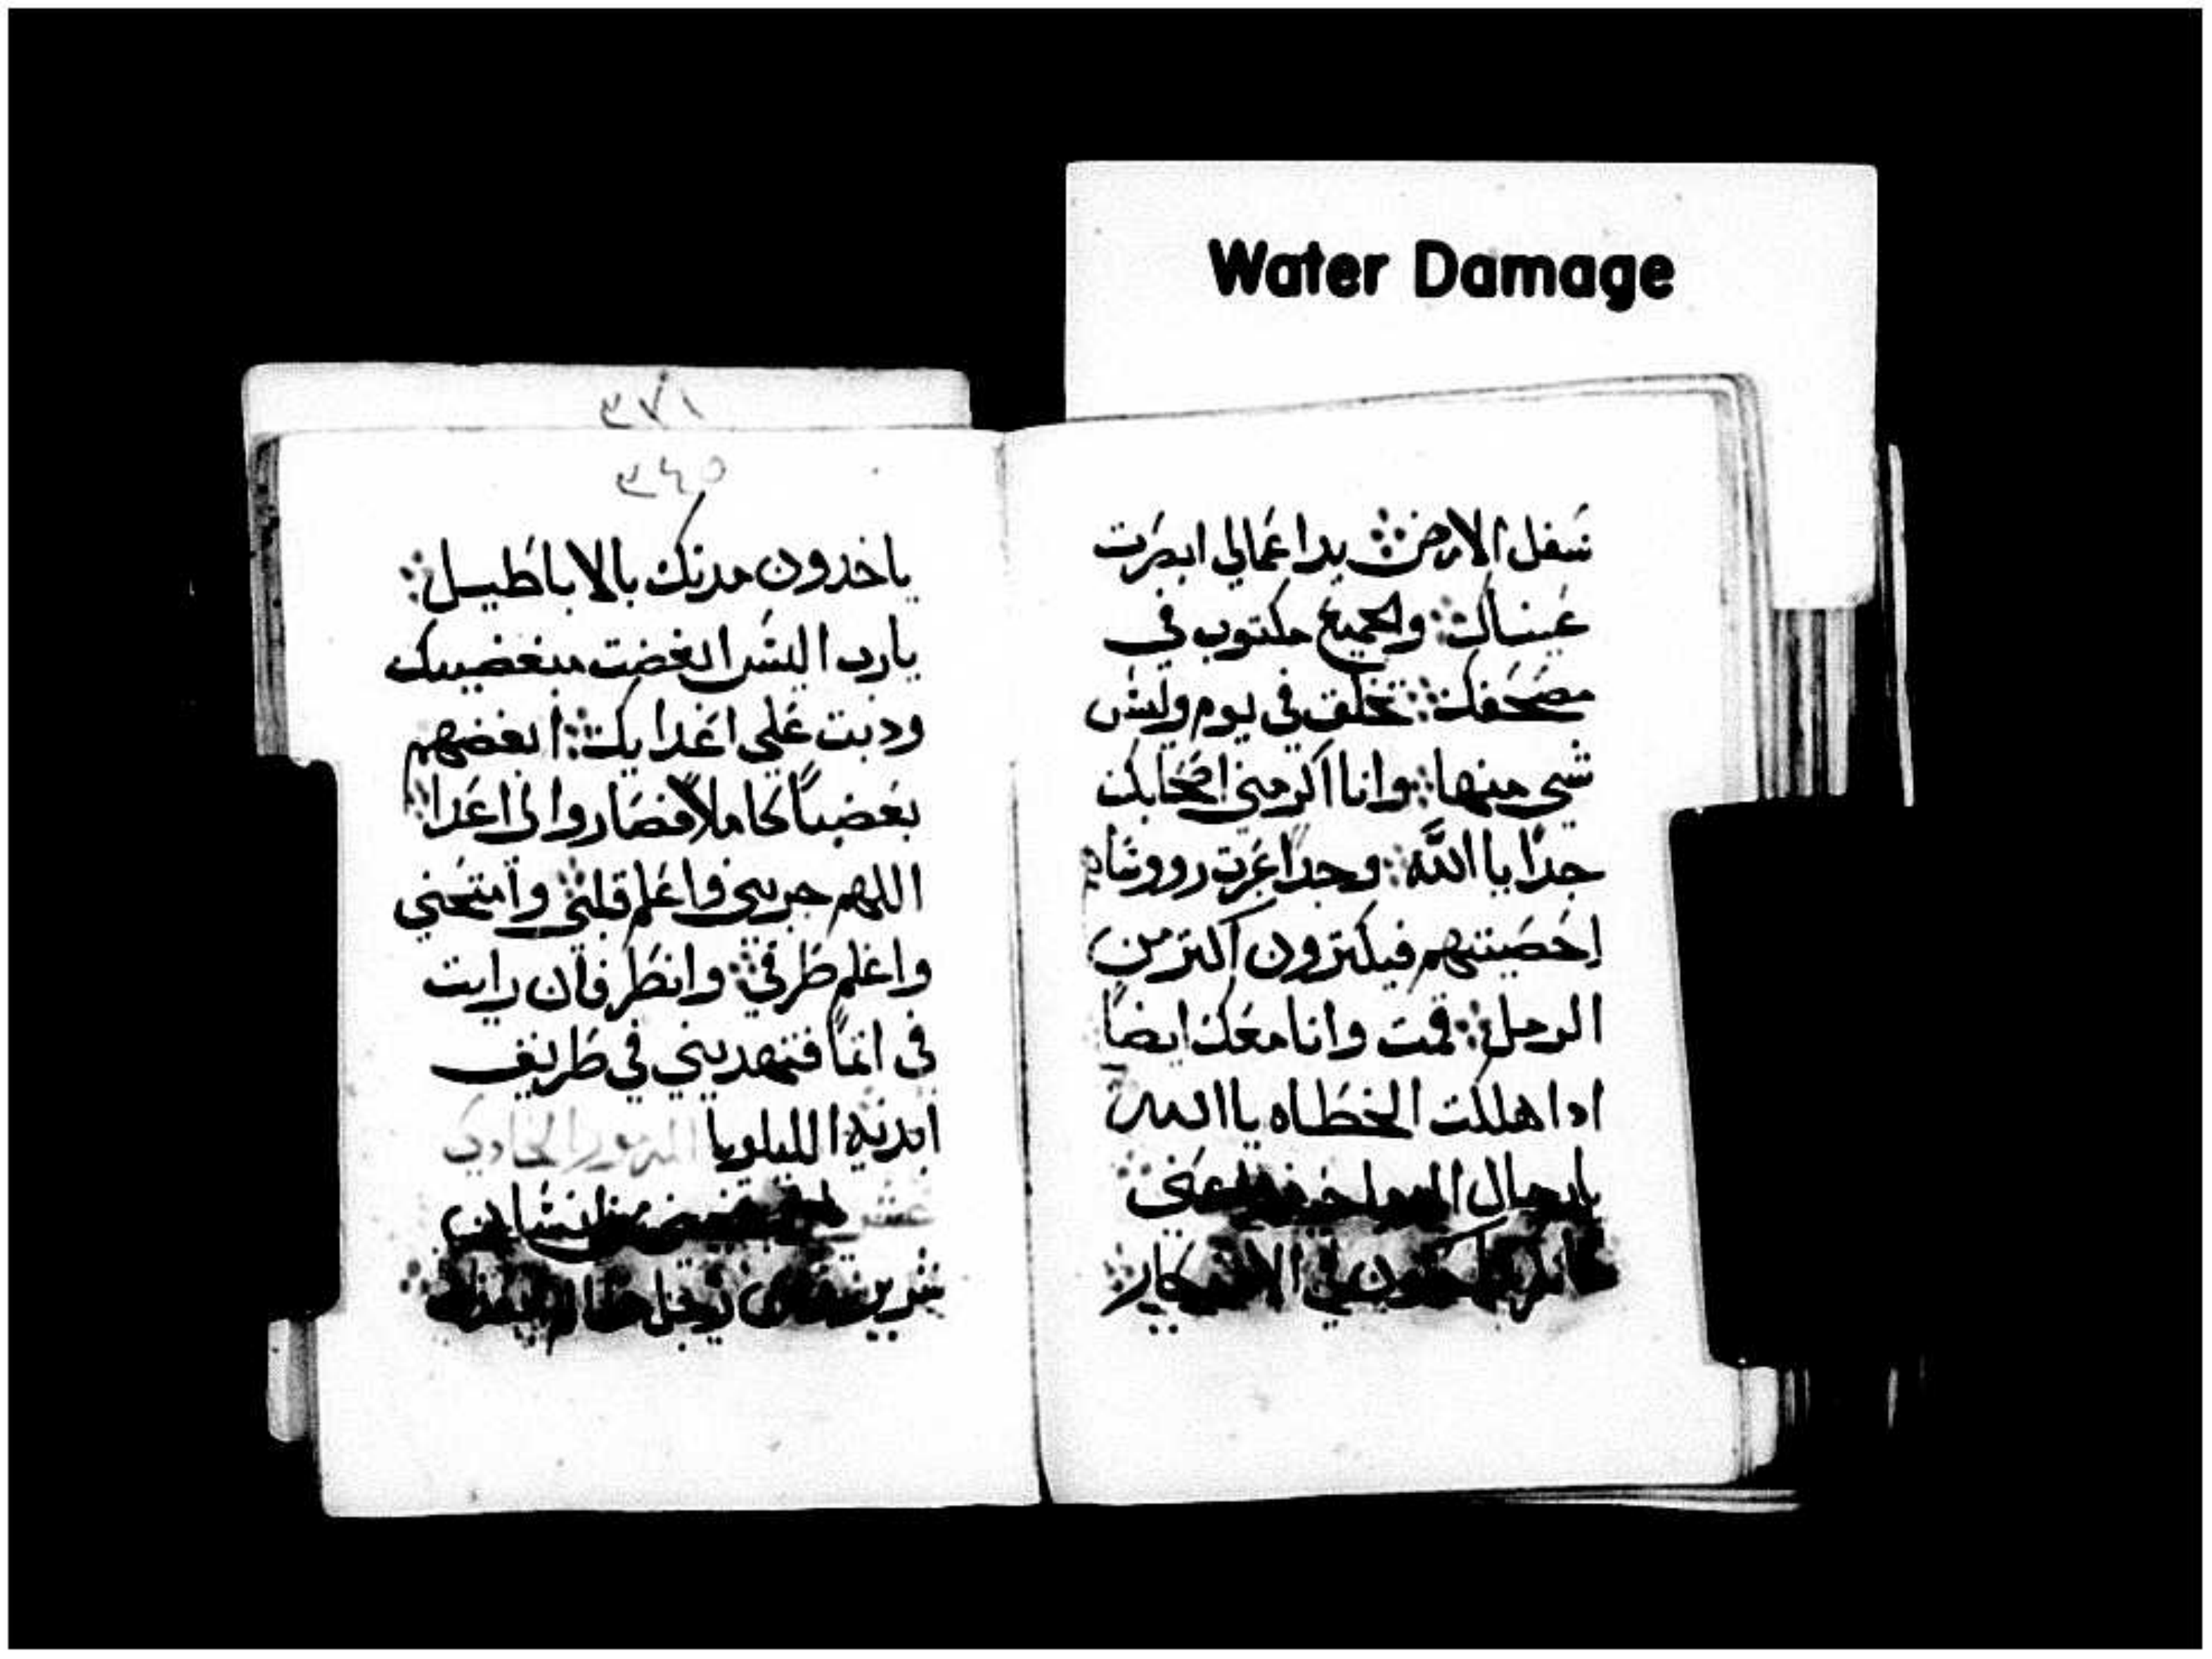 Water Damage
سفل الارض بدا عمالي ابصرت
عيناك والجميع مكتوب في
مصحفك تخلق في يوم وليس
شي منها وانا اكرمني اصحابك
جدًا يا الله وجدًا عزت رووساهم
احصيتهم فيكترون اكتر من
الرمل قمت وانا معك ايضًا
ادا هلكت الخطاه يا الله
يا رجال عني
في الافكار
٣٧١
٣٤٥
ياخدون مدنك بالاباطيل
يارب اليس ابغضت مبغضيك
ودبت علي اعدايك ابغضهم
بغضبًا كاملًا فصاروا لي اعدا
اللهم جربني واعلم قلبي وامتحني
واعلم طرقي وانظر فان رايت
في اتمًا فتهديني في طريق
ابدية الليلويا المزمور الحادي
عشر